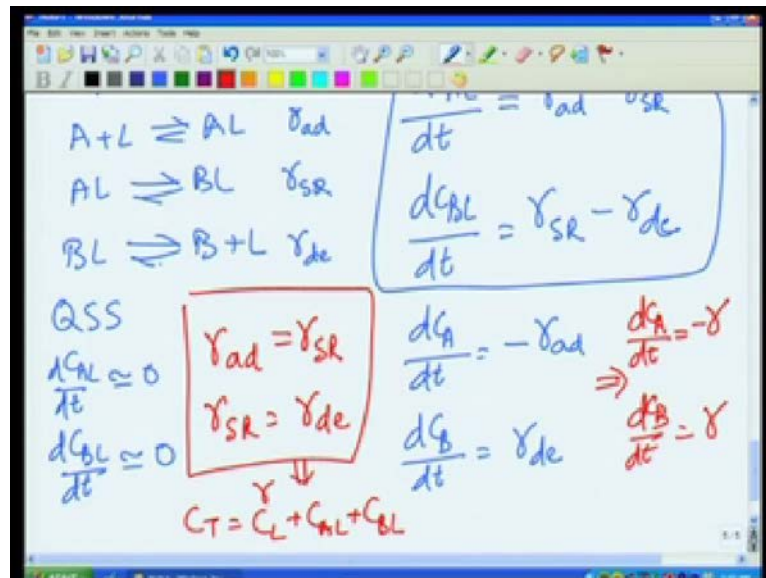 File Edit View Insert Actions Tools Help
B I
A + L ⇌ AL r_ad
AL ⇌ BL r_SR
BL ⇌ B + L r_de
dC_AL/dt = r_ad r_SR
dC_BL/dt = r_SR - r_de
QSS
dC_AL/dt ≃ 0
dC_BL/dt ≃ 0
r_ad = r_SR
r_SR = r_de
⇓
r
C_T = C_L + C_AL + C_BL
dC_A/dt = -r_ad
dC_B/dt = r_de
⇒
dC_A/dt = -r
dC_B/dt = r
5/5